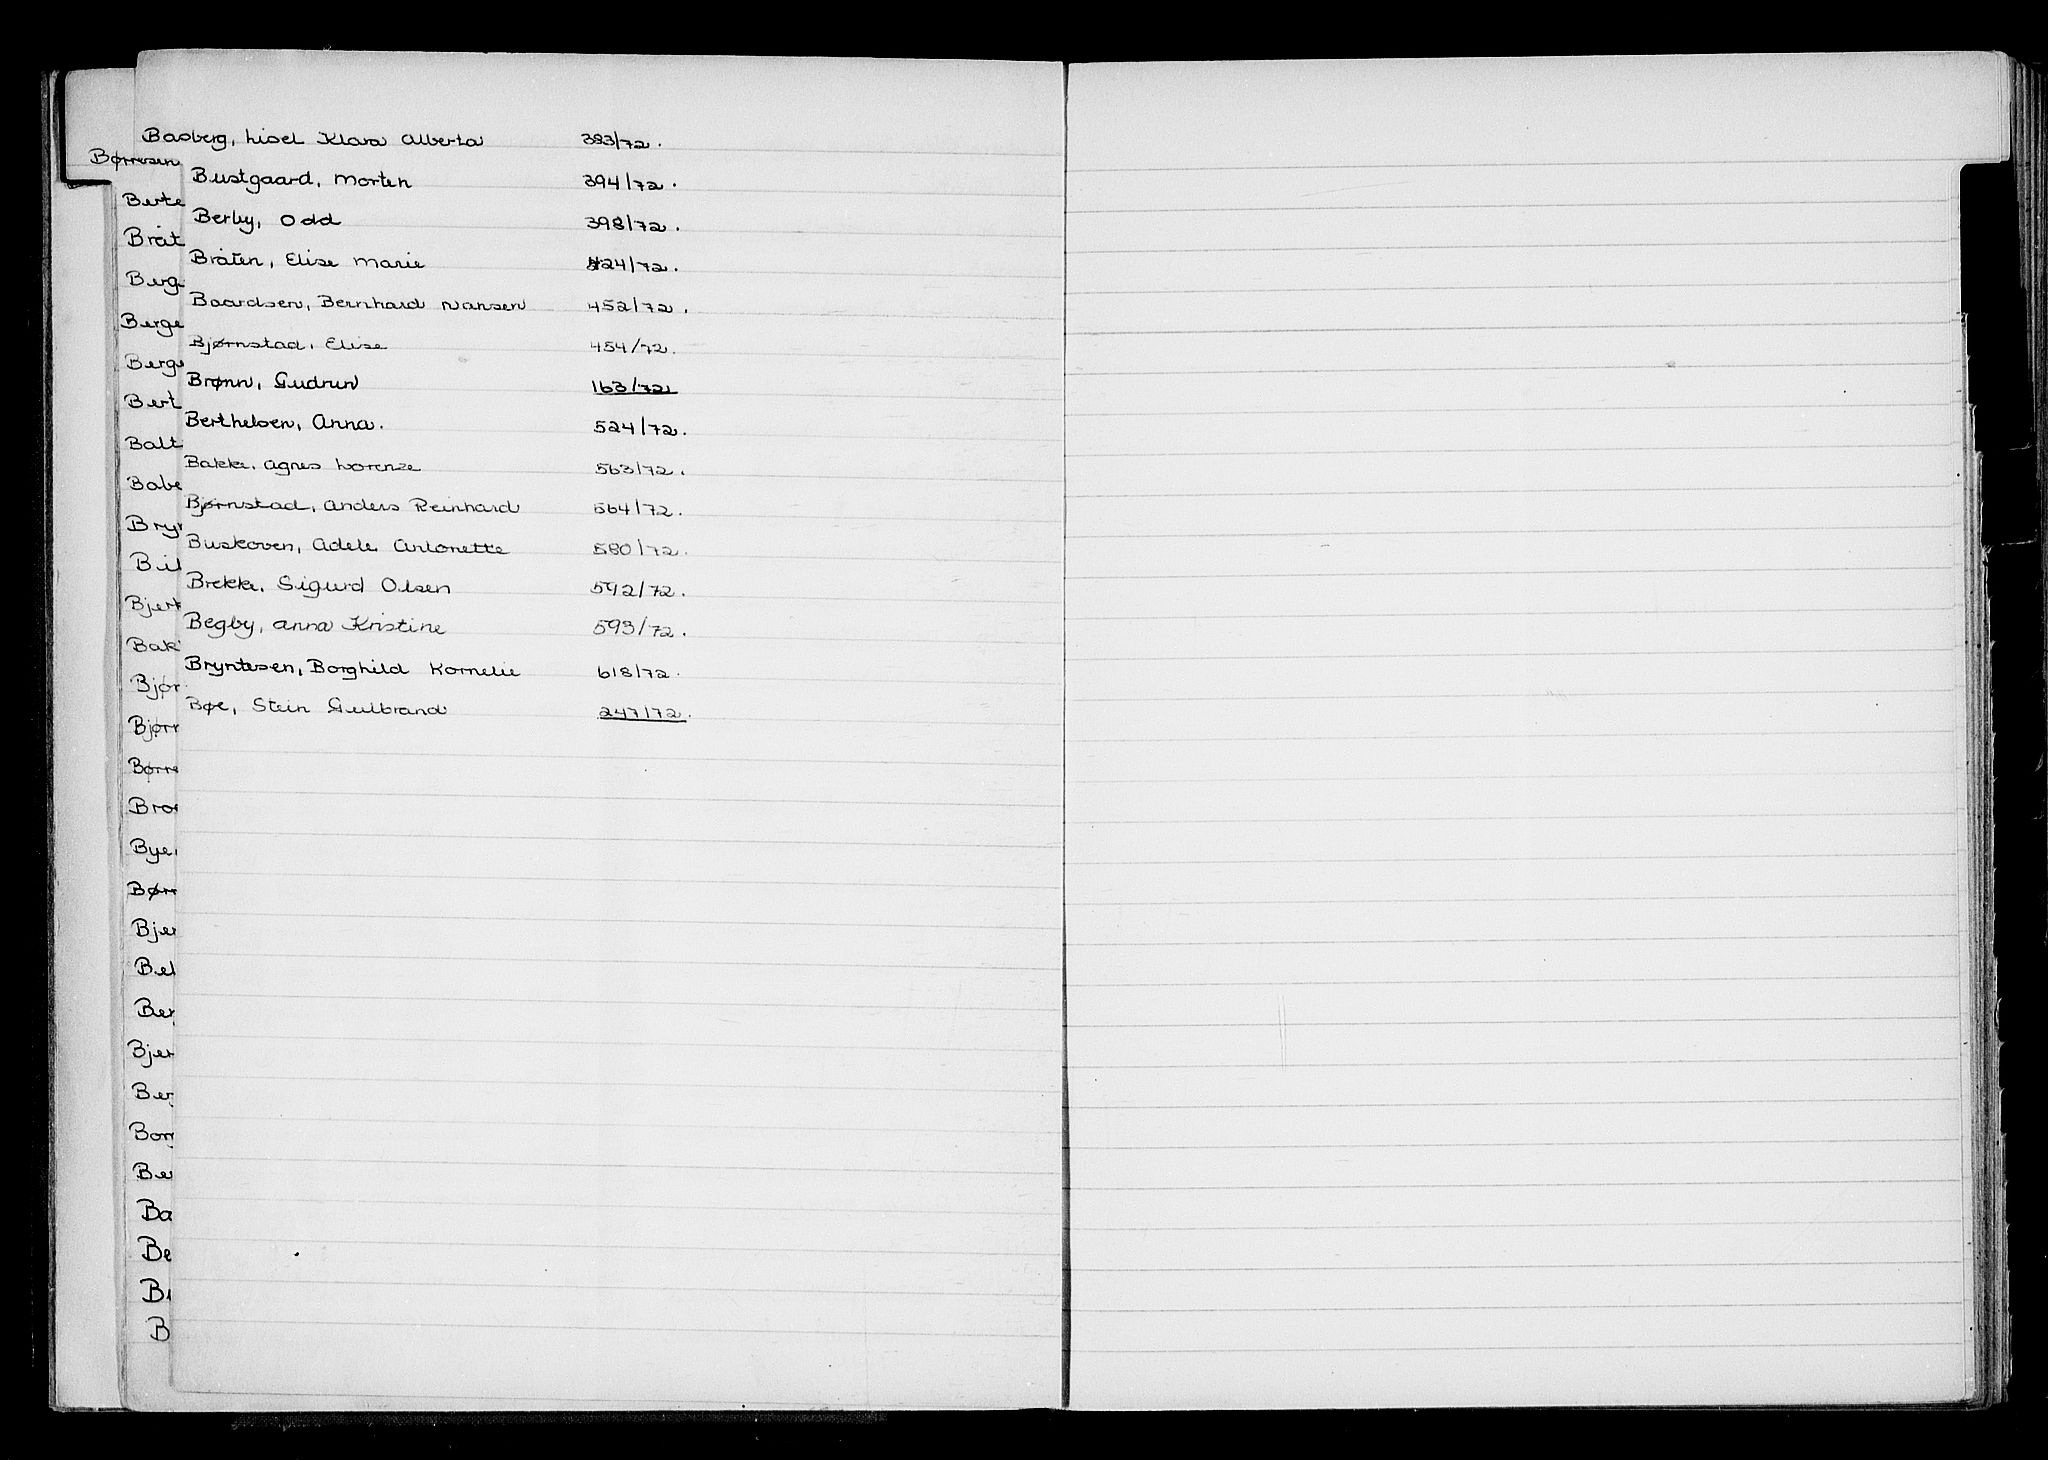 Basberg, Lisel Klara Alberta 383/72.
Bustgaard, Morten 394/72.
Berby, Odd 398/72.
Bråten, Elise Marie 424/72.
Baardsen, Bernhard Nansen 452/72.
Bjørnstad, Elise 454/72.
Brønn, Gudrun 163/72
Berthelsen, Anna. 524/72.
Bakke, Agnes Lorenze 563/72.
Bjørnstad, Anders Reinhard 564/72.
Buskoven, Adele Antonette 580/72.
Brekke, Sigurd Olsen 592/72.
Begby, Anna Kristine 593/72.
Bryntesen, Borghild Kornelie 618/72.
Bøe, Stein Gulbrand 247/72.
Børresen
Berte
Bråt
Berge
Berge
Bert
Balt
Babe
Bjør
Børre
Bye,
Bjer
Ba
Be
B